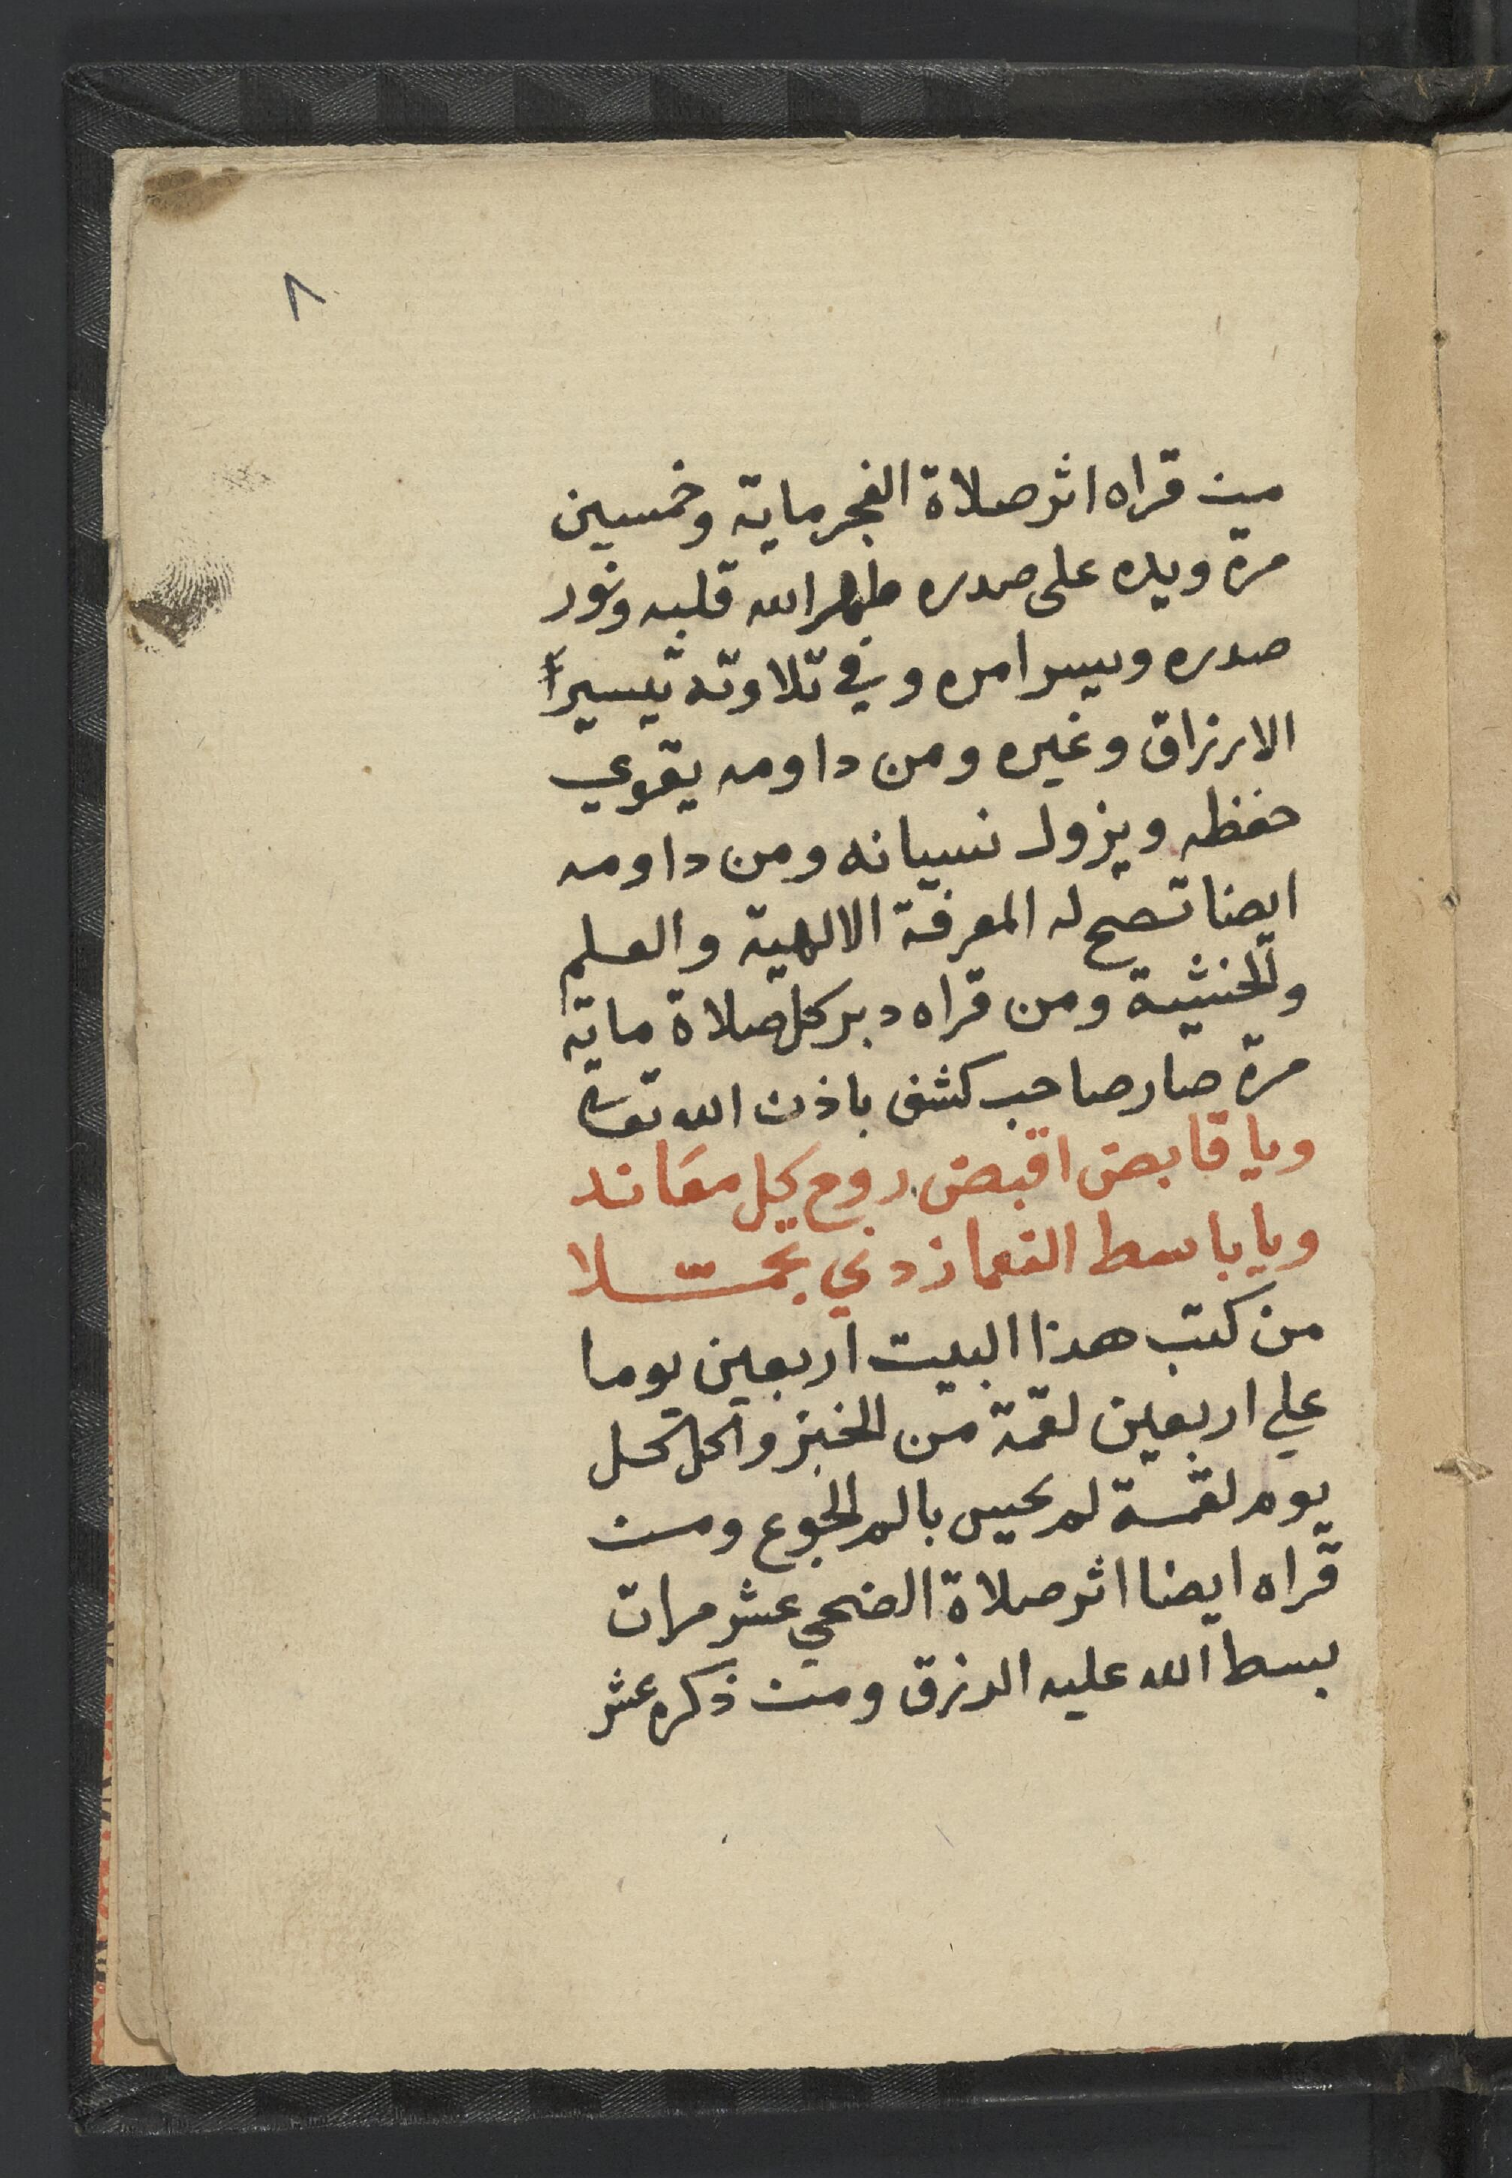 ٨
من قراه اثر صلاة الفجر ماية وخمسين
مرة ويده على صدره طهر الله قلبه ونور
صدره ويسر امره وفي تلاوته تيسيراً
الارزاق وغيره ومن داومه يقوي
حفظه ويزول نسيانه ومن داومه
ايضا تصح له المعرفة الالهية والعلم
والخشية ومن قراه دبر كل صلاة ماية
مرة صار صاحب كشف باذن الله تعالى
ويا قابض اقبض روح كل معاند
ويا باسط النعما زدني تجملا
من كتب هذا البيت اربعين يوما
علي اربعين لقمة من الخبز واكل كل
يوم لقمة لم يحس بالم الجوع ومن
قراه ايضا اثر صلاة الضحي عشر مرات
بسط الله عليه الرزق ومن ذكره عشر